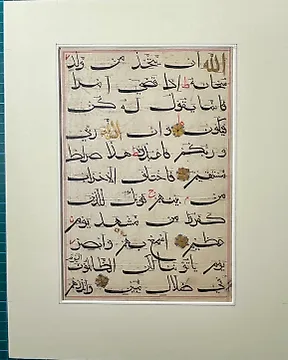 لله ان يتخذ من ولد
سبحانه اذا قضى امرا
فانما يقول له كن
فيكون وان الله ربى
وربكم فاعبدوه هذا صراط
مستقيم فاختلف الاحزاب
من بينهم فويل للذين
كفروا من مشهد يوم
عظيم اسمع بهم وابصر
يوم ياتوننا لكن الظالمون اليوم
فى ضلال مبين وانذرهم